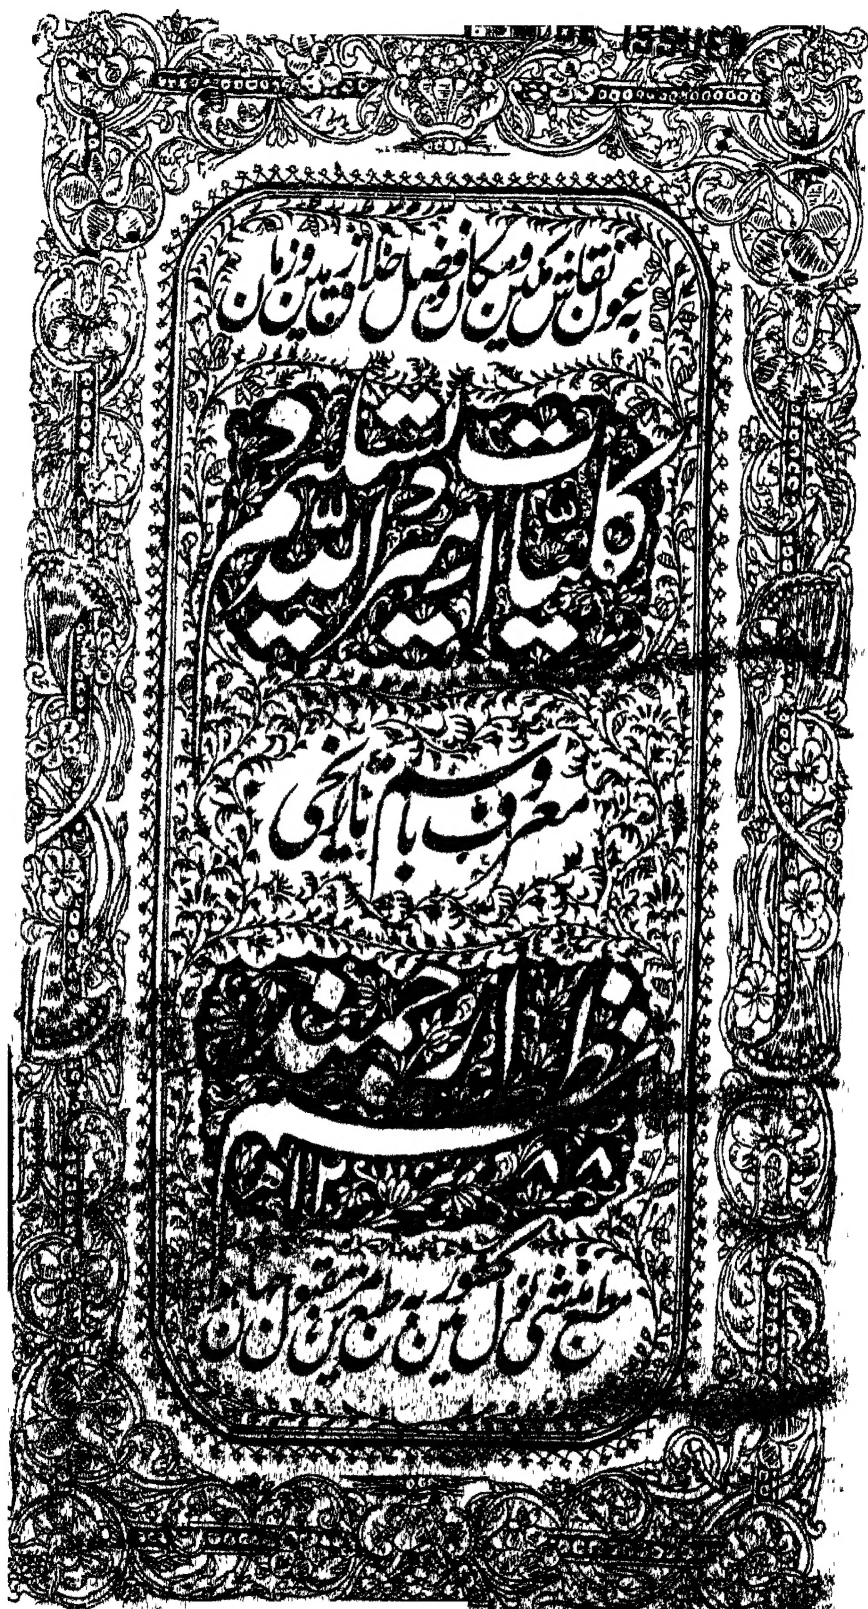 بعون نقاش مکین و مکان و فضل خداوند زمین و زمان
کلیات امیر اللہ تسلیم
معروف باسم تاریخی
نظم ارجمند
۱۲۸۸
مطبع منشی نولکشور میں بہ طبع مزین مقبول جہان